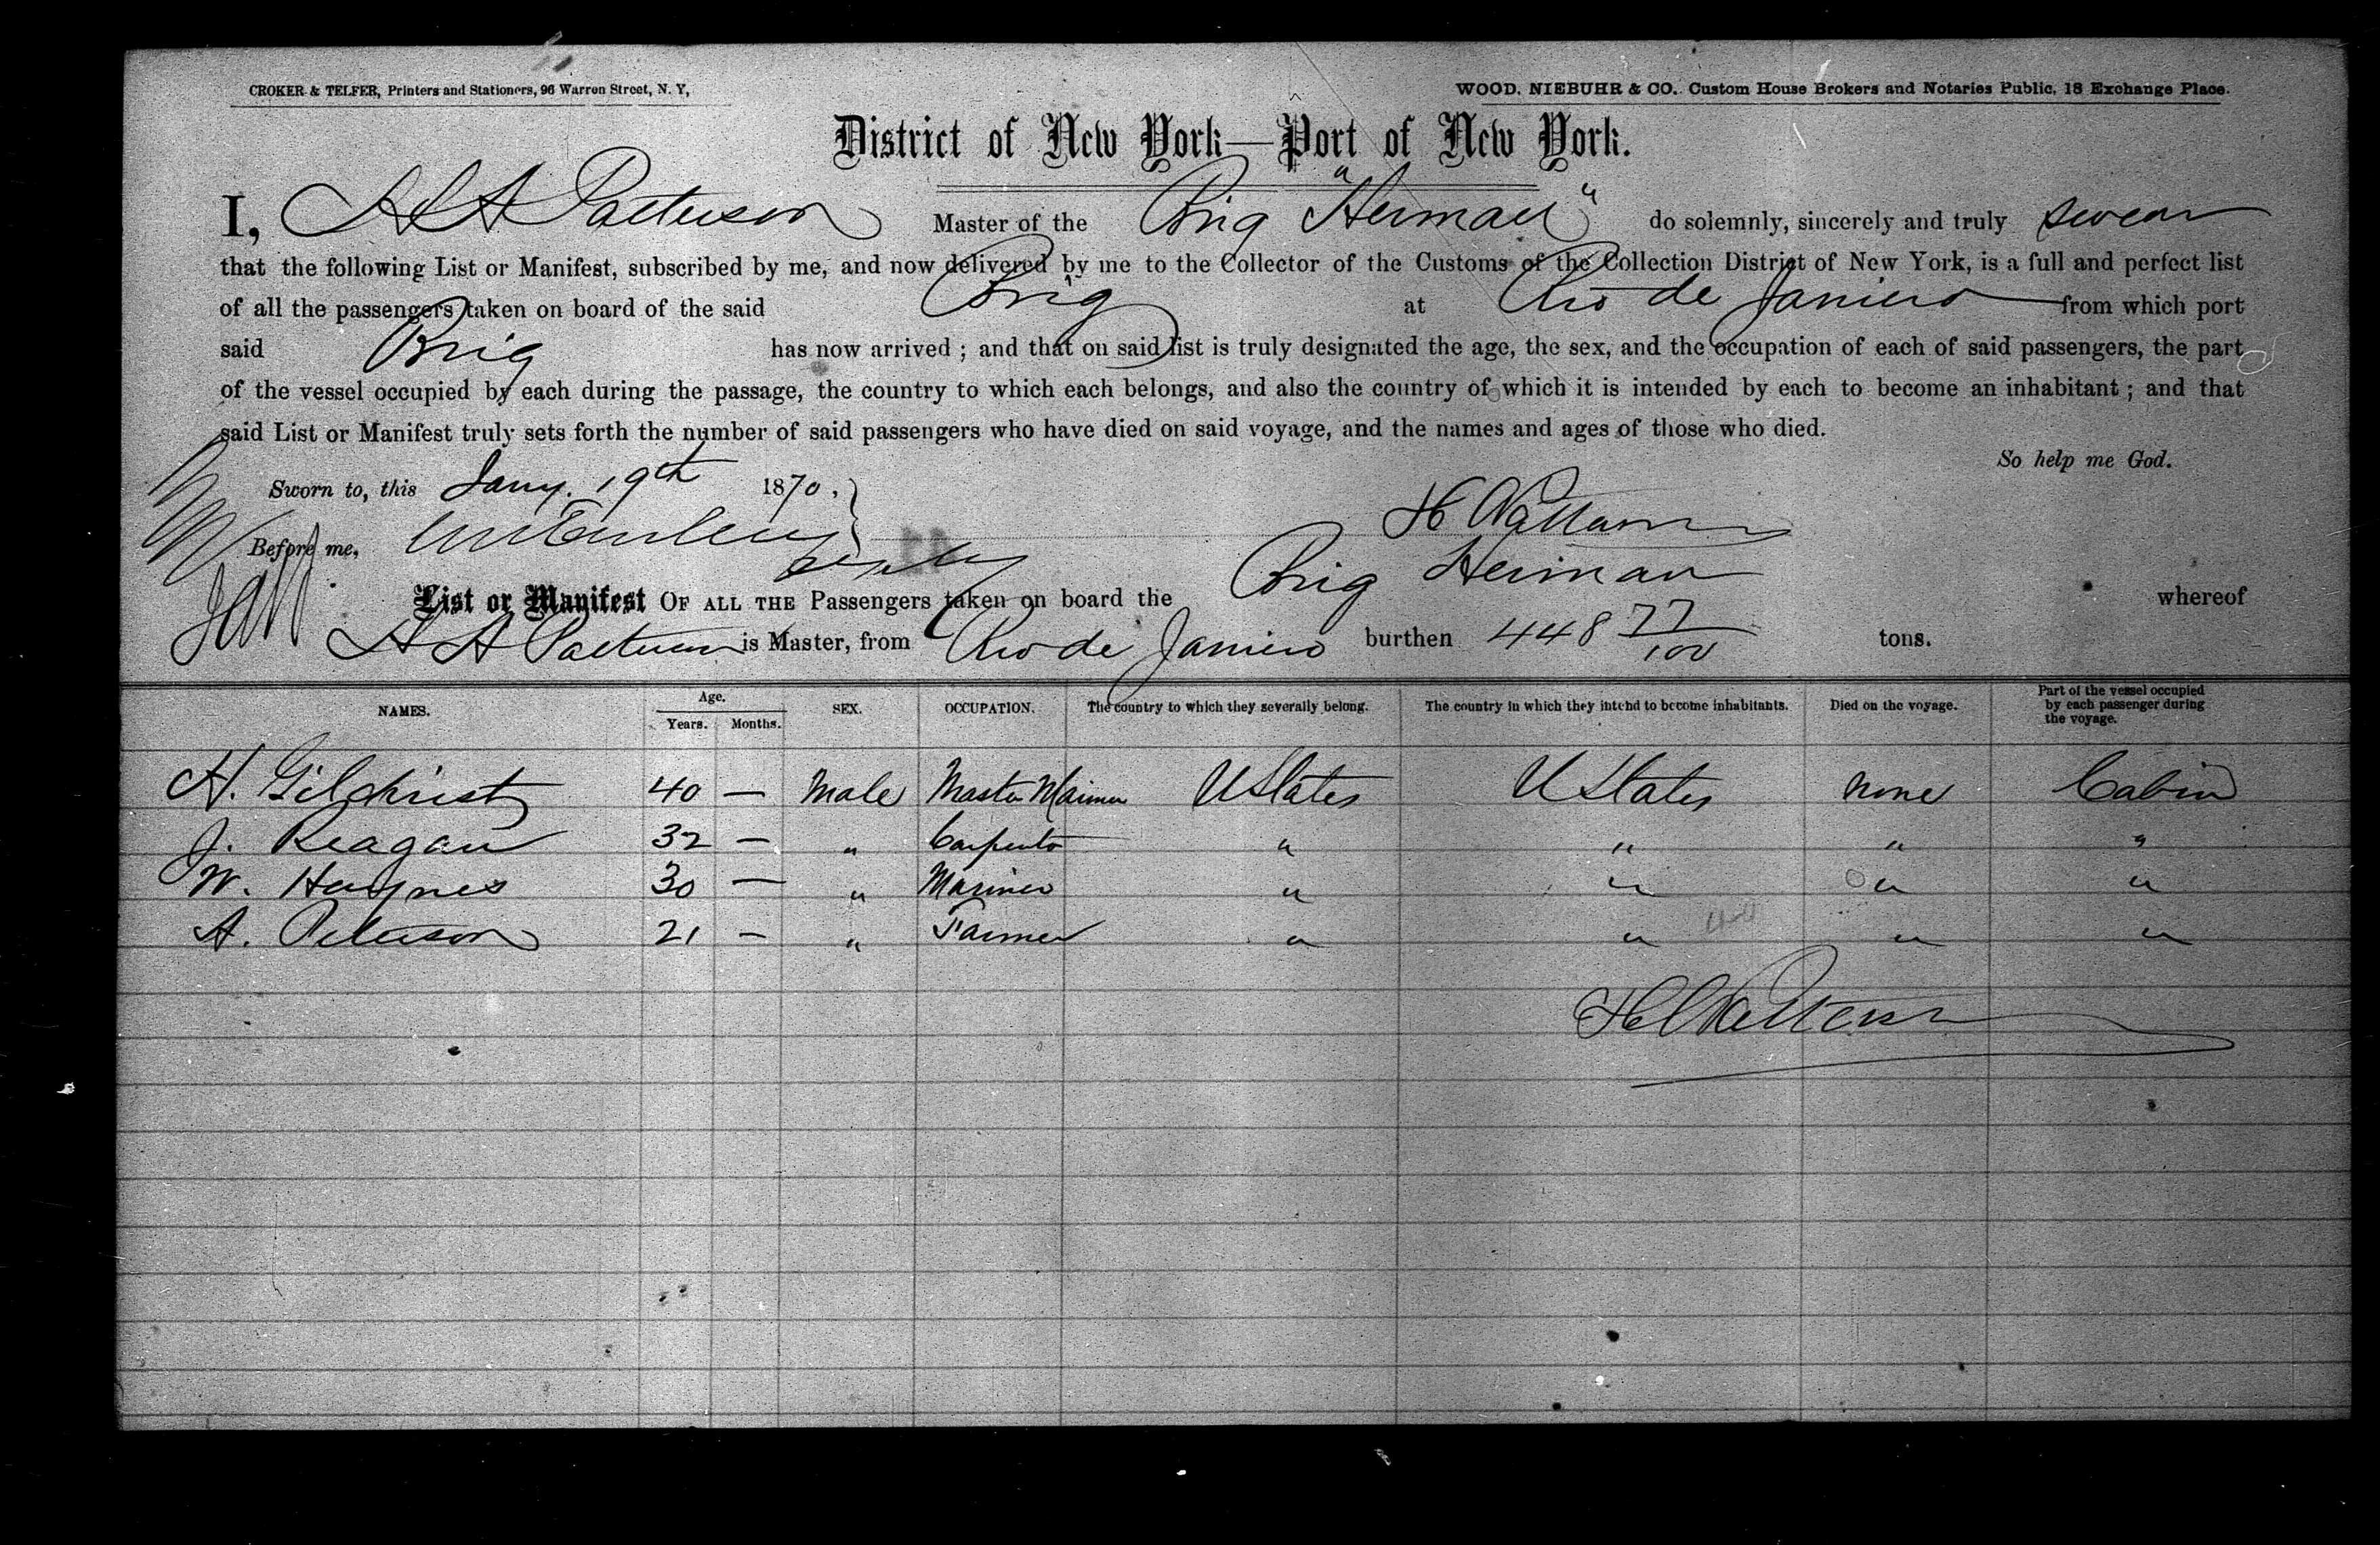 CROKER & TELFER, Printers and Stationers, 96 Warren Street, N. Y,
WOOD, NIEBUHR & CO. Custom House Brokers and Notaries Public, 18 Exchange Place.
District of New York—Port of New York.
I, H A Patterson Master of the Brig "Herman" do solemnly, sincerely and truly swear
that the following List or Manifest, subscribed by me, and now delivered by me to the Collector of the Customs of the Collection District of New York, is a full and perfect list
of all the passengers taken on board of the said Brig at Rio de Janiero from which port
said Brig has now arrived ; and that on said list is truly designated the age, the sex, and the occupation of each of said passengers, the part
of the vessel occupied by each during the passage, the country to which each belongs, and also the country of which it is intended by each to become an inhabitant ; and that
said List or Manifest truly sets forth the number of said passengers who have died on said voyage, and the names and ages of those who died.
So help me God.
Sworn to, this Jany. 19th 1870.
Before me,
List or Manifest OF ALL THE Passengers taken on board the Brig Herman whereof
H A Patterson is Master, from Rio de Janiero burthen 448 77/100 tons.
NAMES. Age. Years. Months. SEX. OCCUPATION. The country to which they severally belong. The country in which they intend to become inhabitants. Died on the voyage. Part of the vessel occupied by each passenger during the voyage.
H. Gilchrist 40 — Male Master Mariner U States U States none Cabin
J. Reagan 32 — " Carpenter " " " "
W. Haynes 30 — " Mariner " " " "
A. Peterson 21 — " Farmer " " " "
H A Patterson